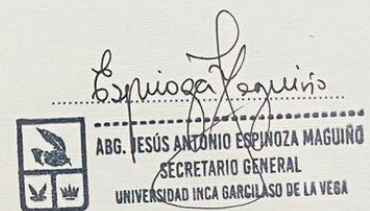 Espinoza Maguiño
ABG. JESÚS ANTONIO ESPINOZA MAGUIÑO
SECRETARIO GENERAL
UNIVERSIDAD INCA GARCILASO DE LA VEGA